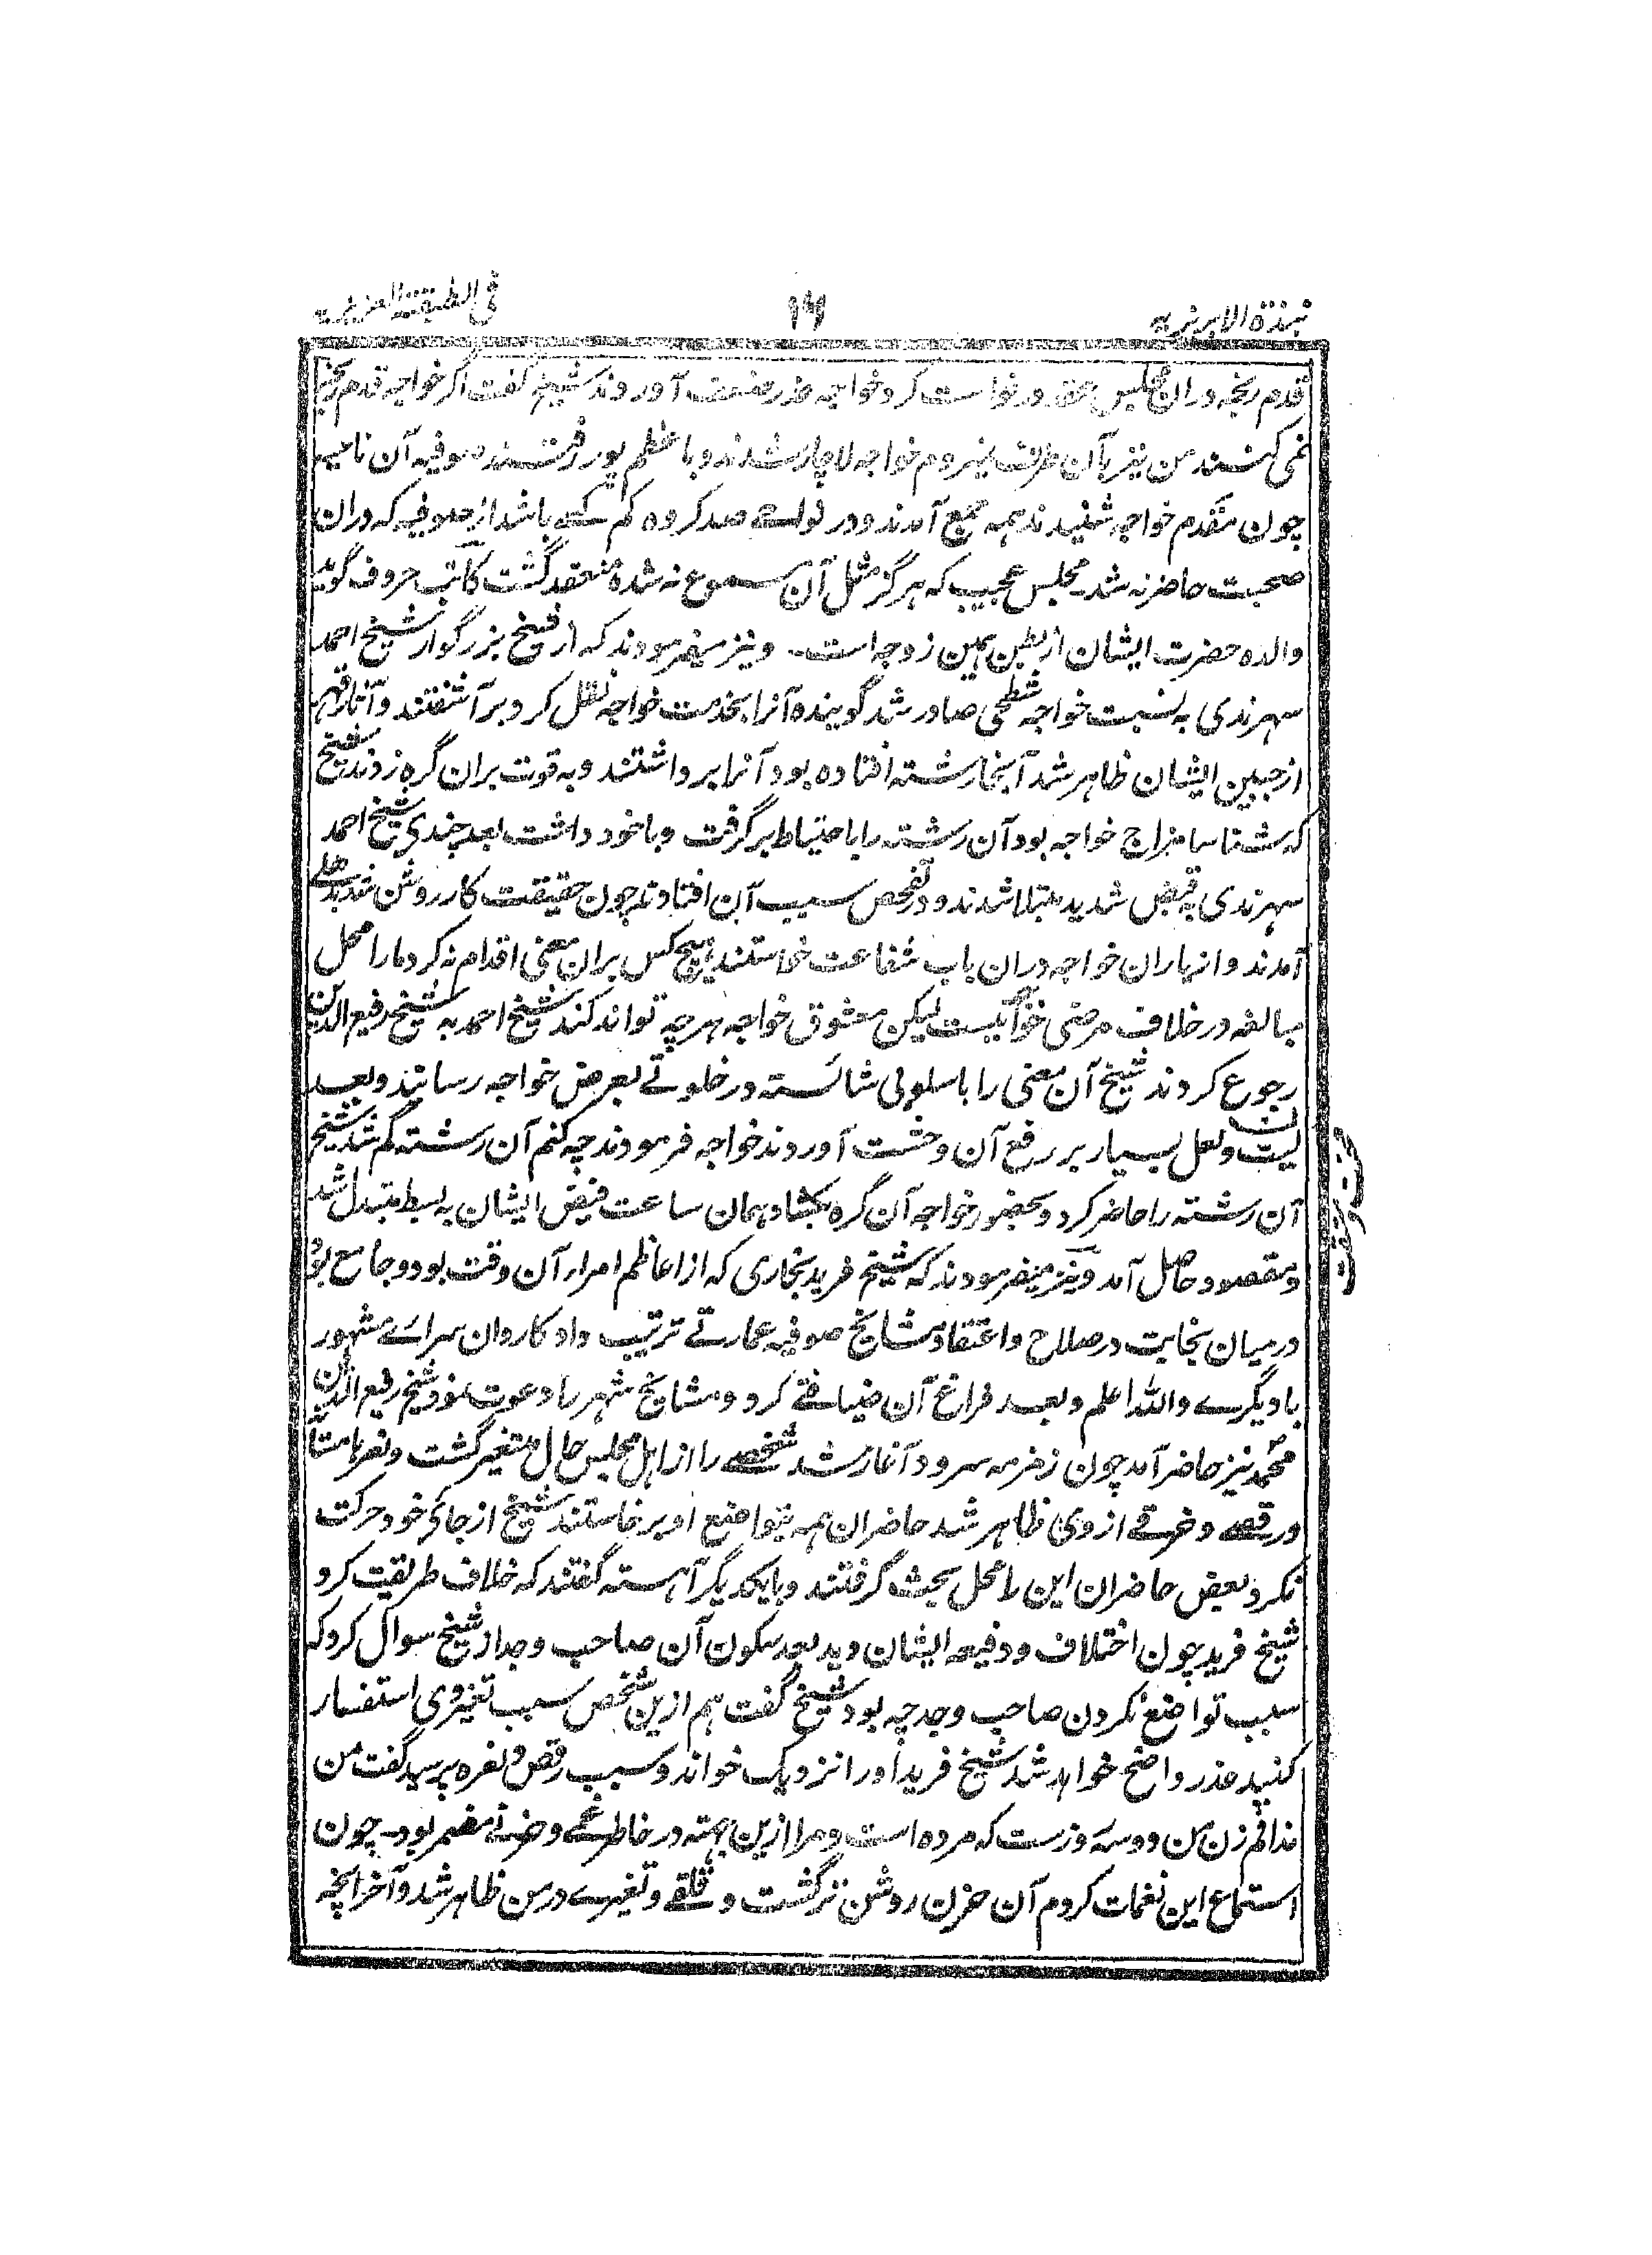 نبذة الابریزیه ۱۶ فی الطبقة العزیزیه
قدم رنجه دران مجلس درخواست کرد خواجه عذر ضعف آوردند شیخ گفت اگر خواجه قدم رنجه
نمی کنند من نیز بآن طرف نیروم خواجه لاچار شدند و باعظم پور رفتند صوفیه آن ناحیه
چون مقدم خواجه شنیدند همه جمع آمدند و در نواحے صد کروه کم کسے باشد از صوفیه که دران
صحبت حاضر نه شد۔ مجلس عجیب که هرگز مثل آن مسموع نه شده منعقد گشت کاتب حروف گوید
والده حضرت ایشان از بطن همین زوجه است۔ و نیز میفرمودند که از شیخ بزرگوار شیخ احمد
سهرندی به نسبت خواجه شطحی صادر شد گوینده آنرا بخدمت خواجه نقل کرد برآشفتند و آثار قهر
از جبین ایشان ظاهر شد آنجا رشته افتاده بود آنرا برداشتند و به قوت بران گره زدند شیخ
که شناسا مزاج خواجه بود آن رشته را باحتیاط برگرفت و باخود داشت بعد چندی شیخ احمد
سهرندی به قبض شدید مبتلا شدند و در تفحص سبب آن افتادند چون حقیقت کار روشن شد بدهلے
آمدند و از یاران خواجه دران باب شفاعت خواستند هیچ کس بران معنی اقدام نه کرد ما را محل
مبالغه در خلاف مرضی خواجه نیست لیکن معشوق خواجه هرچه تواند کند شیخ احمد به شیخ رفیع الدین
رجوع کردند شیخ آن معنی را باسلوبی شائسته در خلوتے بعرض خواجه رسانیدند و بعد
لیت و لعل بسیار بر رفع آن وحشت آوردند خواجه فرمودند چه کنم آن رشته گم شد شیخ
آن رشته را حاضر کرد و بحضور خواجه آن گره بکشاد همان ساعت قبض ایشان به بسط مبدل شد
و مقصود حاصل آمد و نیز میفرمودند که شیخ فرید بخاری که از اعاظم امراء آن وقت بود و جامع بود
درمیان نجابت در صلاح و اعتقاد مشایخ صوفیه عمارتے ترتیب داد کاروان سراے مشهور
یا دیگرے والله اعلم و بعد فراغ آن ضیافتے کرد و مشایخ شهر را دعوت نمود شیخ رفیع الدین
محمد نیز حاضر آمد چون زمزمه سرود آغاز شد شخصے را از اهل مجلس حال متغیر گشت و نعرها مستانه
و رقصے و خرقے ازوی ظاهر شد حاضران همه بتواضع او برخاستند شیخ از جای خود حرکت
نکرد بعض حاضران این را محل بحث گرفتند و بایکدیگر آهسته گفتند که خلاف طریقت کرد
شیخ فرید چون اختلاف و دفیعه ایشان دید بعد سکون آن صاحب وجد از شیخ سوال کرد که
سبب تواضع نکردن صاحب وجد چه بود شیخ گفت هم ازین شخص سبب تغیر وی استفسار
کنید عذر واضح خواهد شد شیخ فرید اورا نزدیک خواند و سبب رقص و نعره پرسید گفت من
ندانم زن من دو سه روزست که مرده است و مرا ازین جهته در خاطر غمے و حزنے مضمر بود۔ چون
استماع این نغمات کردم آن حزن روشن تر گشت و قلقے و تغیرے در من ظاهر شد و آخر آنچه